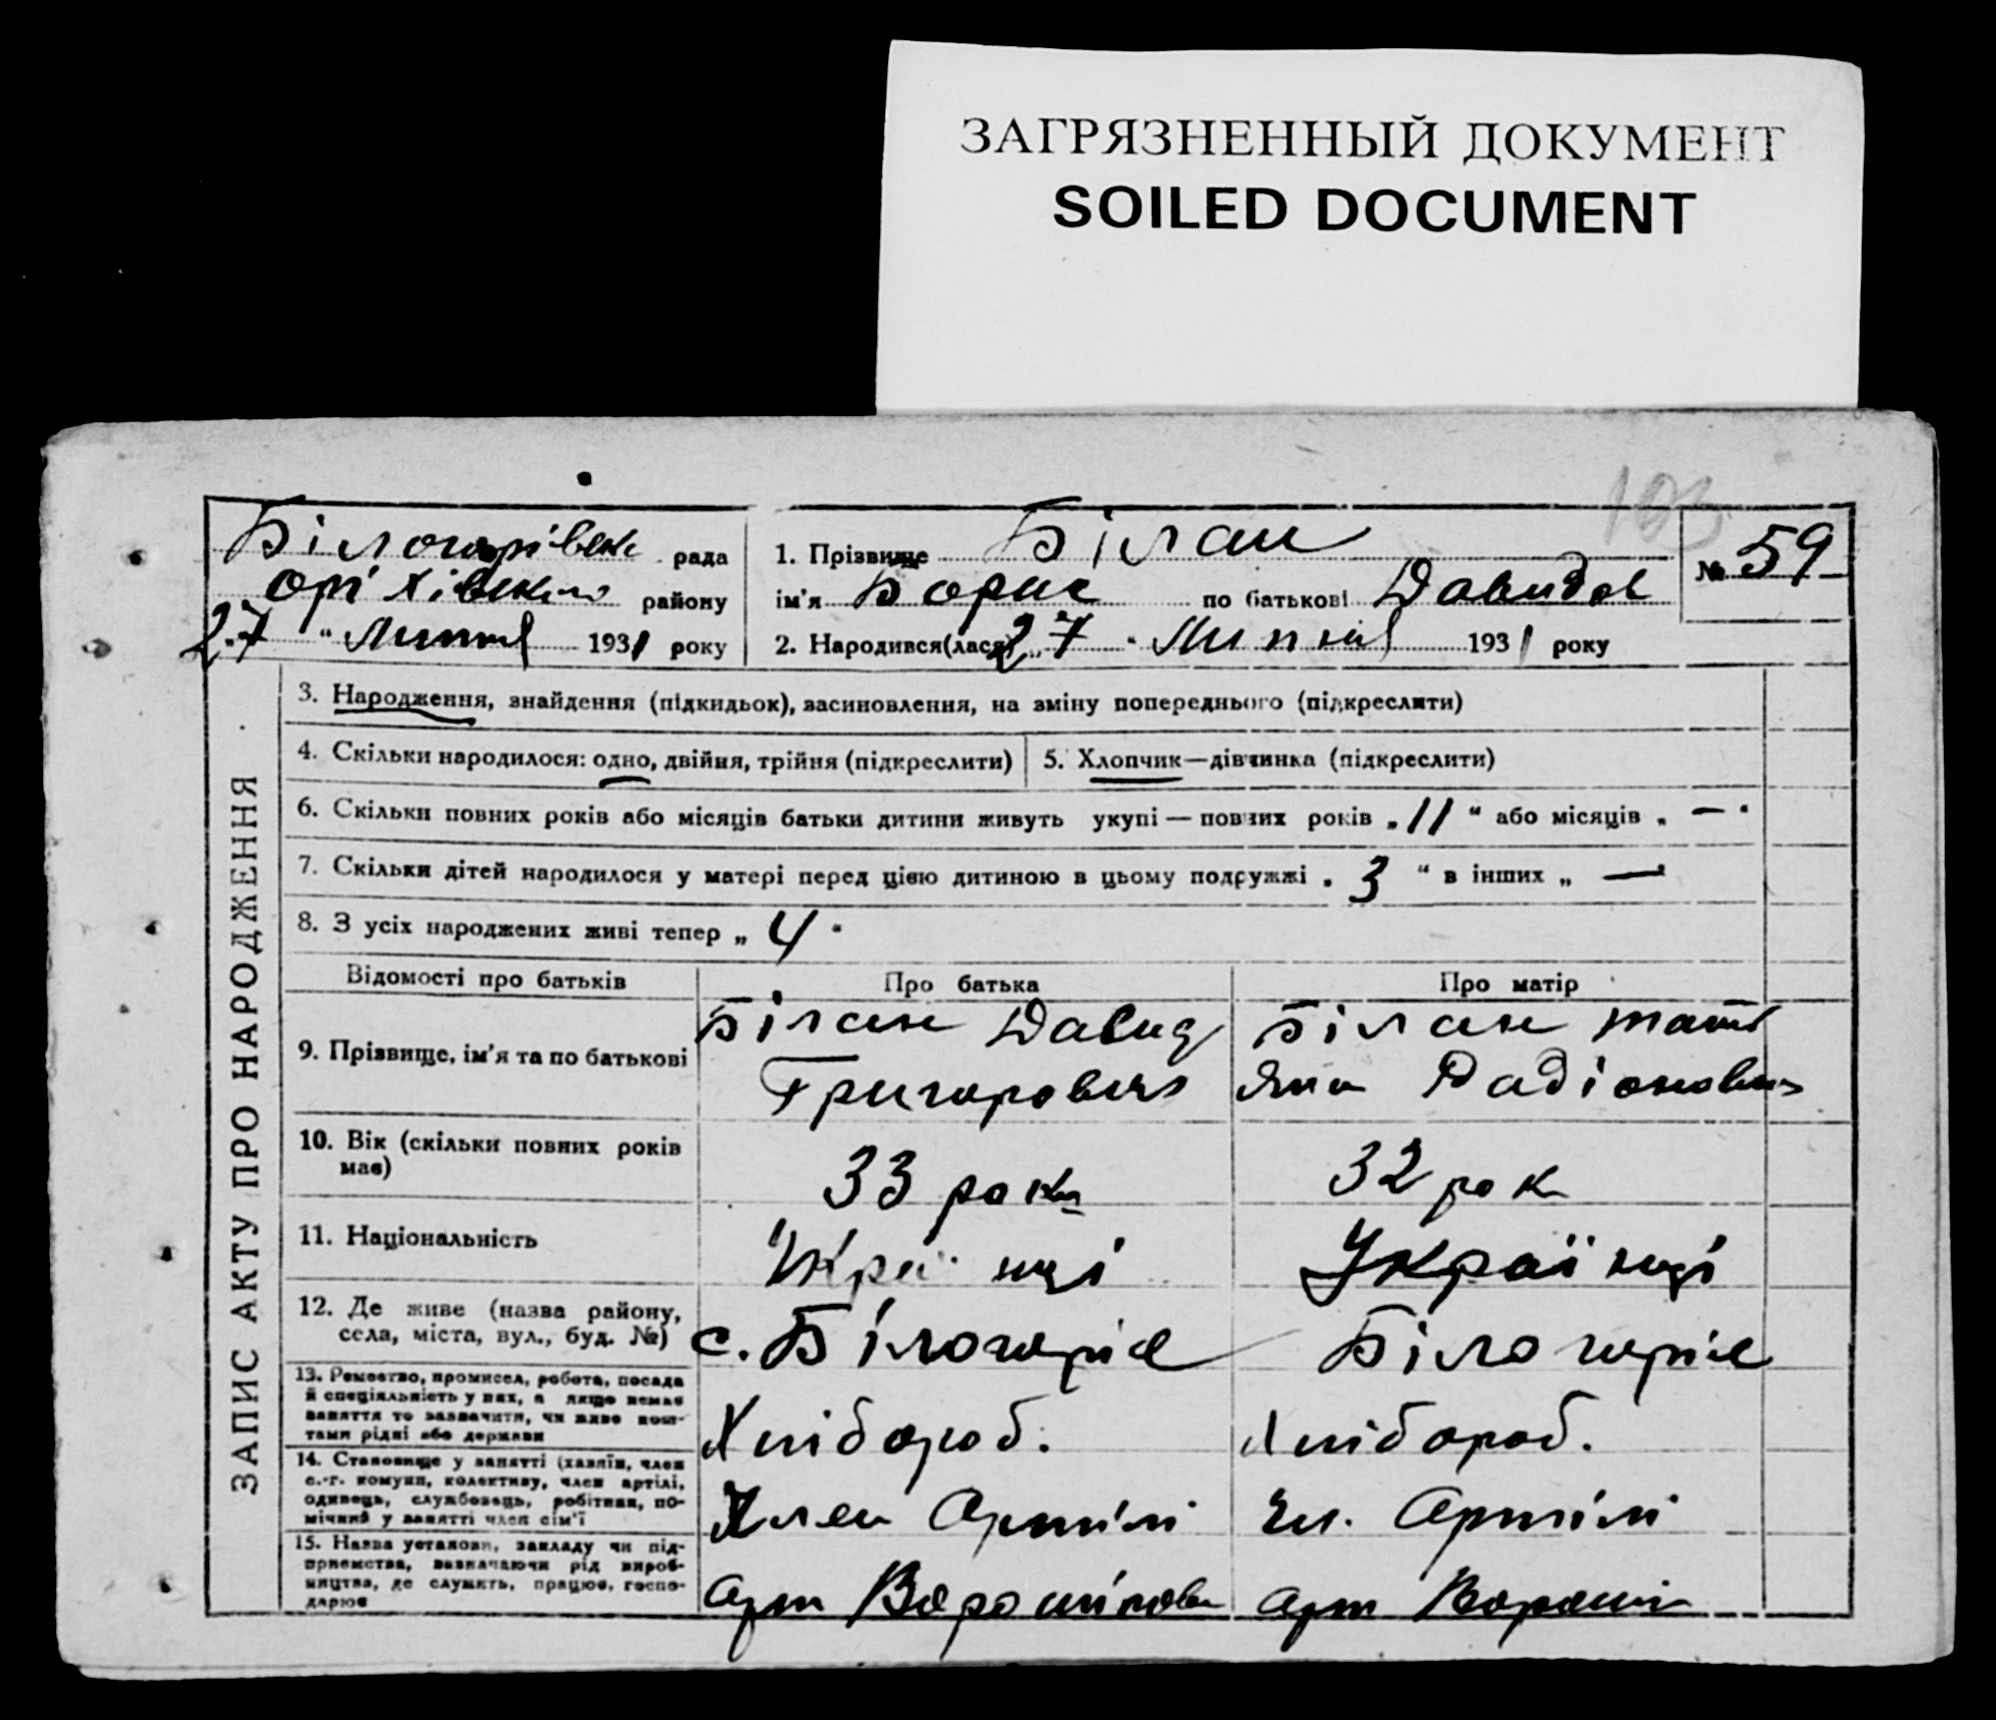 ЗАГРЯЗНЕННЫЙ ДОКУМЕНТ
SOILED DOCUMENT
103
Білогорівськ рада
Оріхівського району
27 " Липня 1931 року
1. Прізвище Білан
ім'я Борис по батькові Давидов
№ 59
2. Народився(лася) „27" Липня 1931 року
ЗАПИС АКТУ ПРО НАРОДЖЕННЯ
3. Народження, знайдення (підкидьок), засиновлення, на зміну попереднього (підкреслити)
4. Скільки народилося: одно, двійня, трійня (підкреслити)
5. Хлопчик—дівчинка (підкреслити)
6. Скільки повних років або місяців батьки дитини живуть укупі — повних років „11" або місяців „ — "
7. Скільки дітей народилося у матері перед цією дитиною в цьому подружжі „ 3 " в інших „ — "
8. З усіх народжених живі тепер „ 4 "
Відомості про батьків Про батька Про матір
9. Прізвище, ім'я та по батькові
Білан Давид
Григорович
Білан Тать
яна Радіоновна
10. Вік (скільки повних років
має)
33 роки
32 рок
11. Національність
Україці
Україці
12. Де живе (назва району,
села, міста, вул., буд. №)
с. Білогоріє
Білогоріє
13. Ремество, промисел, робота, посада
й спеціяльність у них, а якщо немає
заняття то зазначити, чи живе кош-
тами рідні або держави
Хлібороб.
Хлібороб.
14. Становище у занятті (хазяїн, член
с.-г. комуни, колективу, член артілі,
одинець, службовець, робітник, по-
мічний у занятті член сім'ї
Член Артілі
Чл. Артілі
15. Назва установи, закладу чи під-
приємства, зазначаючи рід вироб-
ництва, де служить, працює, госпо-
дарює
Арт Ворошілова
Арт Вороші